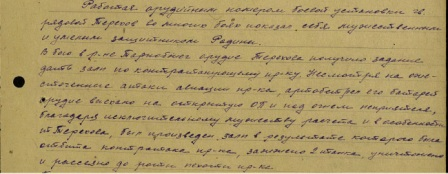 Работая орудийным номером боевой установки
рядовой Терехов во многих боях показал себя мужественным
и умелым защитником Родины.
В бою в р-не орудие Терехова получило задание
дать залп по контратакующему пр-ку. Несмотря на оже-
сточенные атаки авиации пр-ка, артобстрел его батарей
орудие вышло на открытую ОП и под огнем неприятеля,
благодаря исключительному мужеству расчета и в особенности
Терехова, был произведен залп в результате которого была
отбита контратака пр-ка, 2 танка, уничтожено
и рассеяно до роты пехоты пр-ка.